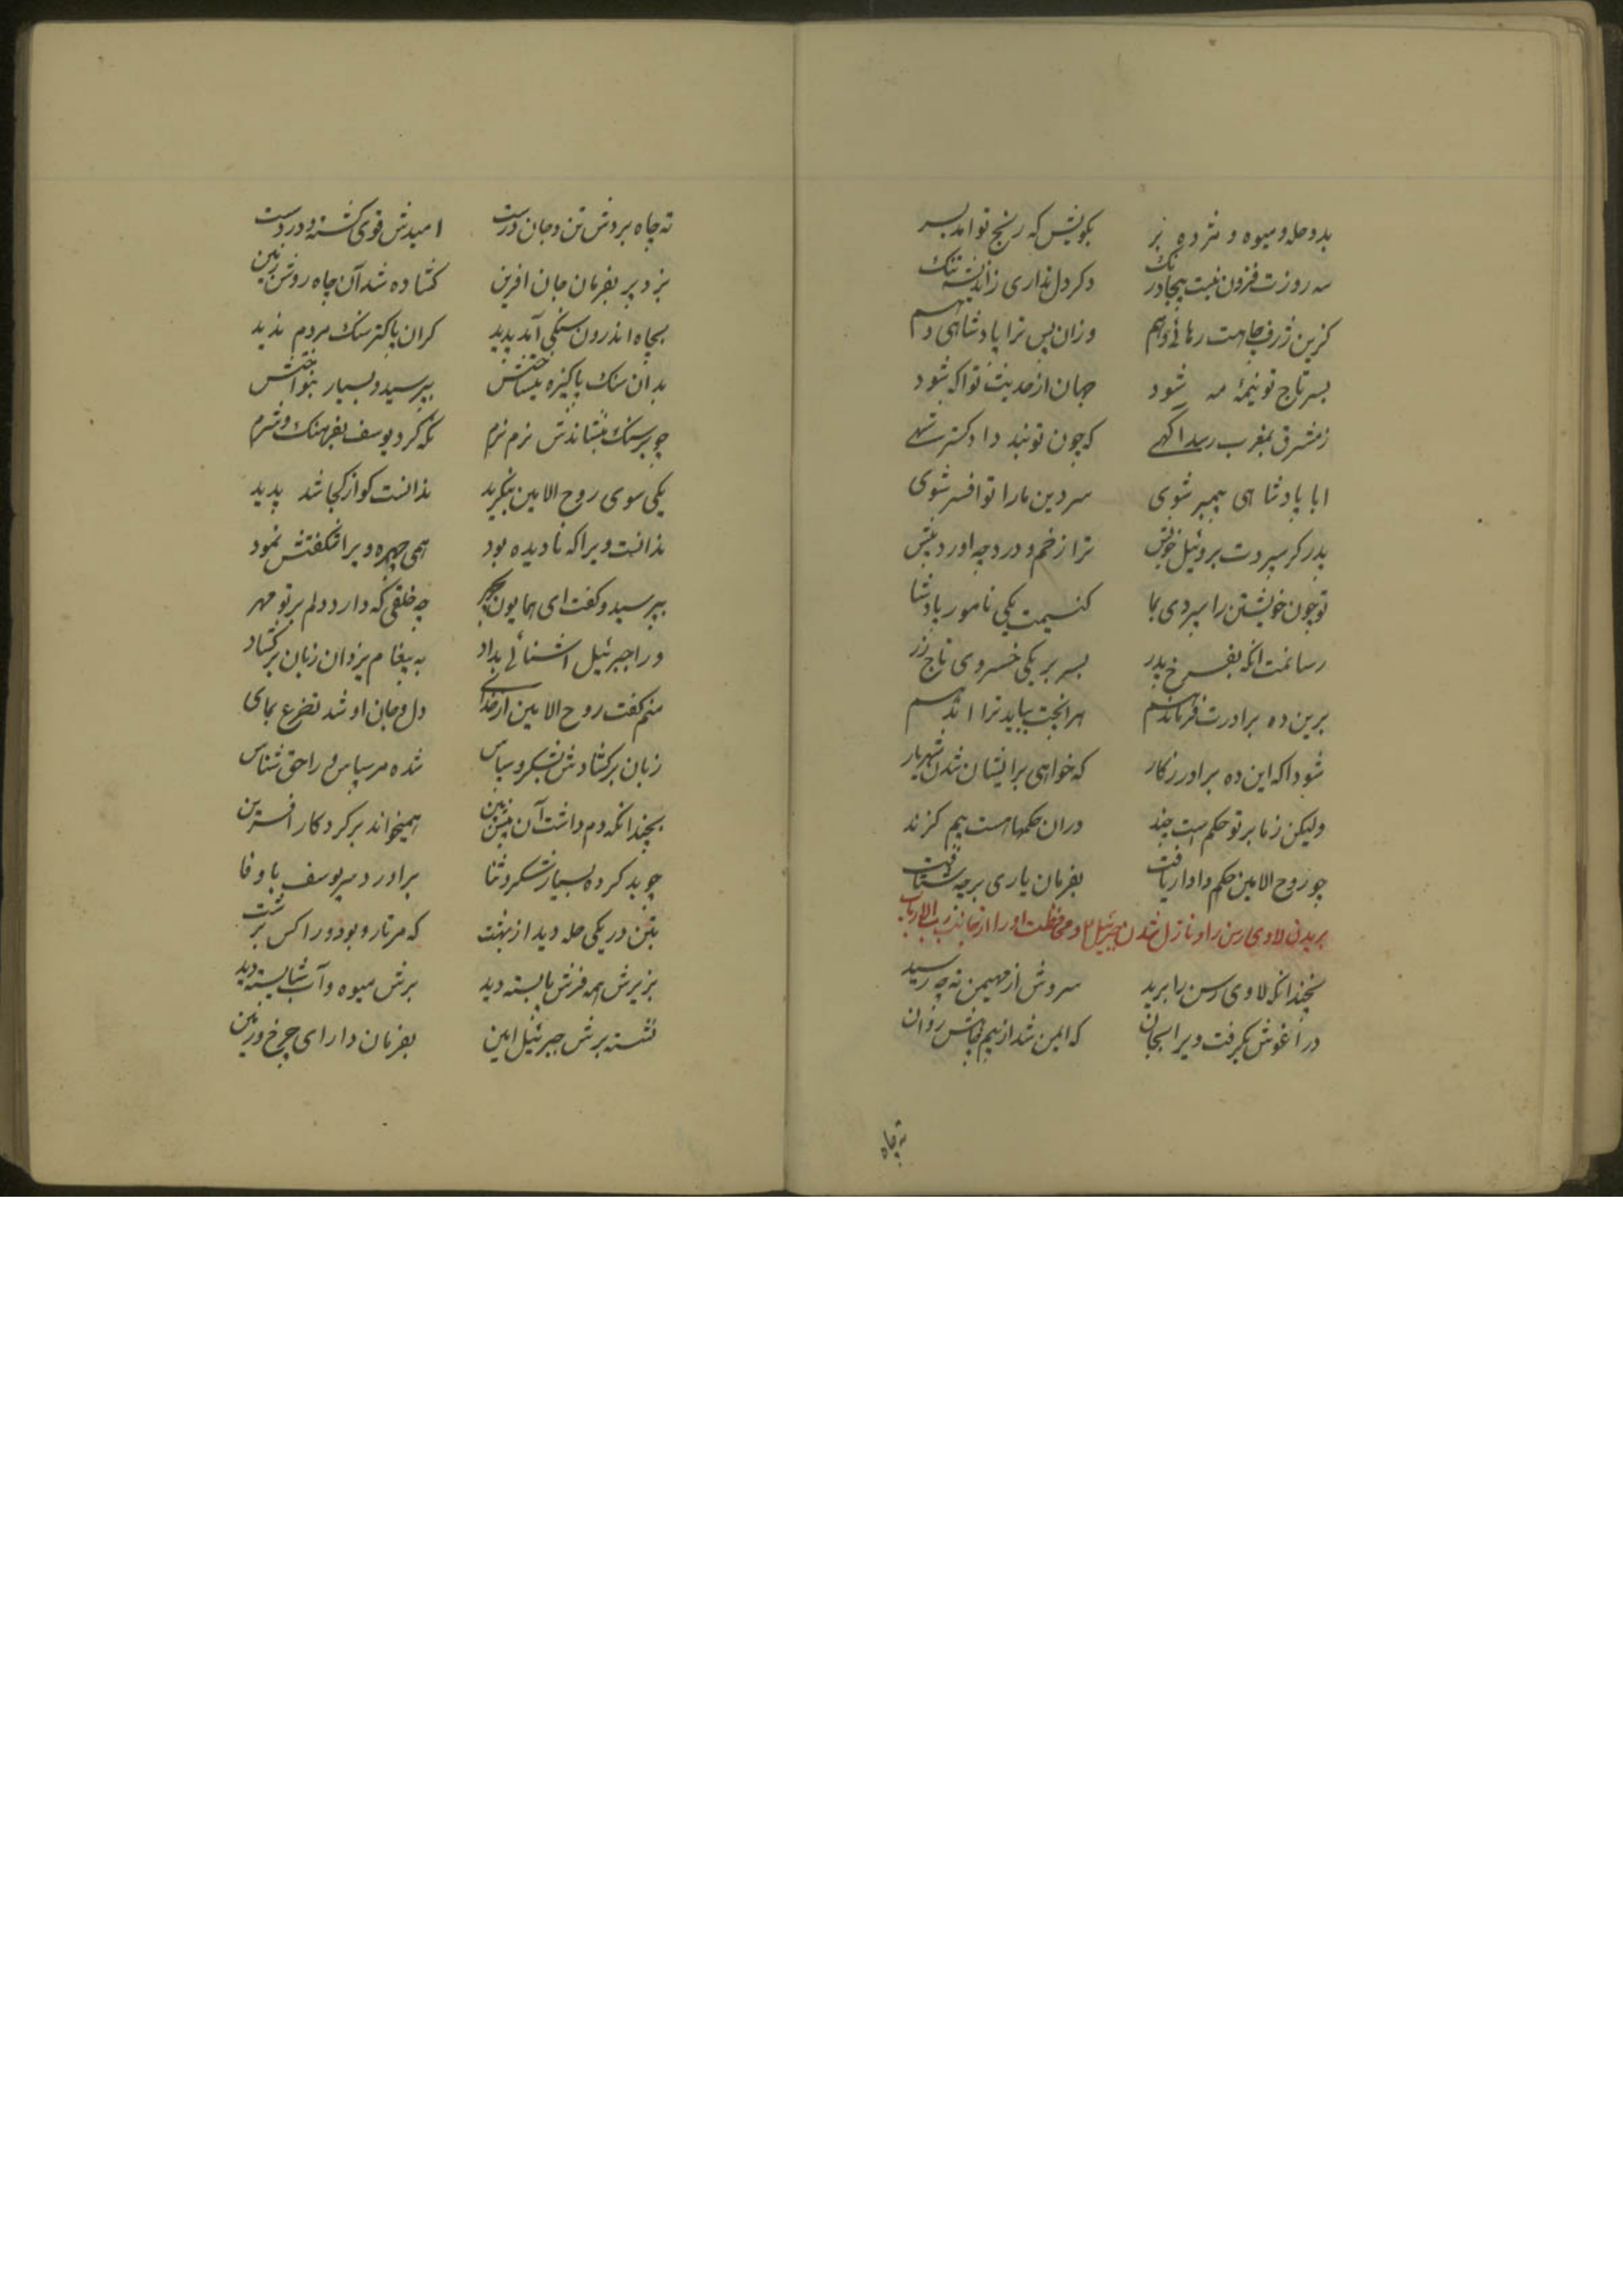 بدو حله و میوه و مژده بر بکویش که رنج تو امد بسر
سه روزت فزون نیست پیچا درنک دکر دل نداری ز اندیشه تنک
کزین ژرف چاهت رهائی دهم وزان پس ترا پادشاهی دهم
بسر تاج تو نیمهٔ مه شود جهان از حدیث تو اکه شود
ز مشرق بمغرب رسد اکهی که چون تو نبد دادکستر شهی
ابا پادشاهی پیمبر شوی سر دین ما را تو افسر شوی
پدر کر سپردت بروئیل خویش ترا زخم و درد وجه اورد پیش
تو چون خویشتن را سپردی بما کنیمت یکی نامور پادشا
رسانمت انکه بفرخ پدر بسر بر یکی خسروی تاج زر
برین ده برادرت فرمان دهم هر انجت بباید ترا ان دهم
شود اکه این ده برادر ز کار که خواهی بر ایشان شدن شهریار
ولیکن ز ما بر تو حکم است چند دران حکمها هست بیم کزند
چو روح الامین حکم دادار یافت بفرمان یاری بر چه شتافت
بریدن لاوی رسن را و نازل شدن جبرئیل و محافظت او را از جانب رب الارباب
بچندانکه لاوی رسن را برید سروش از مهیمن ته چه رسید
در اغوش بکرفت ویرا بجان که ایمن شد از بیم جانش روان
ته چاه
ته چاه بردش تن و جان درست امیدش قوی کشته و درد سست
بزد پر بفرمان جان افرین کشاده شد آن چاه روشن زمین
بچاه اندرون سنکی آمد پدید کزان پاکتر سنک مردم ندید
بدان سنک پاکیزه بنشاختش بپرسید و بسیار بنواختش
چو بر سنک بنشاندش نرم نرم نکه کرد یوسف بفرهنک و شرم
یکی سوی روح الامین بنکرید ندانست کو از کجا شد پدید
ندانست ویرا که نادیده بود همی چهره ویرا شکفتش نمود
بپرسید و کفت ای همایون چهر چه خلقی که دارد دلم بر تو مهر
ورا جبرئیل اشنائی بداد به پیغام یزدان زبان برکشاد
منم کفت روح الامین از خدای دل و جان او شد تضرع نمای
زبان برکشادش بشکر و سپاس شده مر سپاس را حق شناس
بچندانکه دم داشت آن پیش بین همیخواند بر کردکار افرین
چو بد کرده بسیار شکر و ثنا براورد سر یوسف با وفا
بتن در یکی حله دید از بهشت که مر تار و پود ورا کس نرشت
بزیرش همه فرش بایسته دید برش میوه و آب شایسته دید
نشسته برش جبرئیل امین بفرمان دارای چرخ و زمین